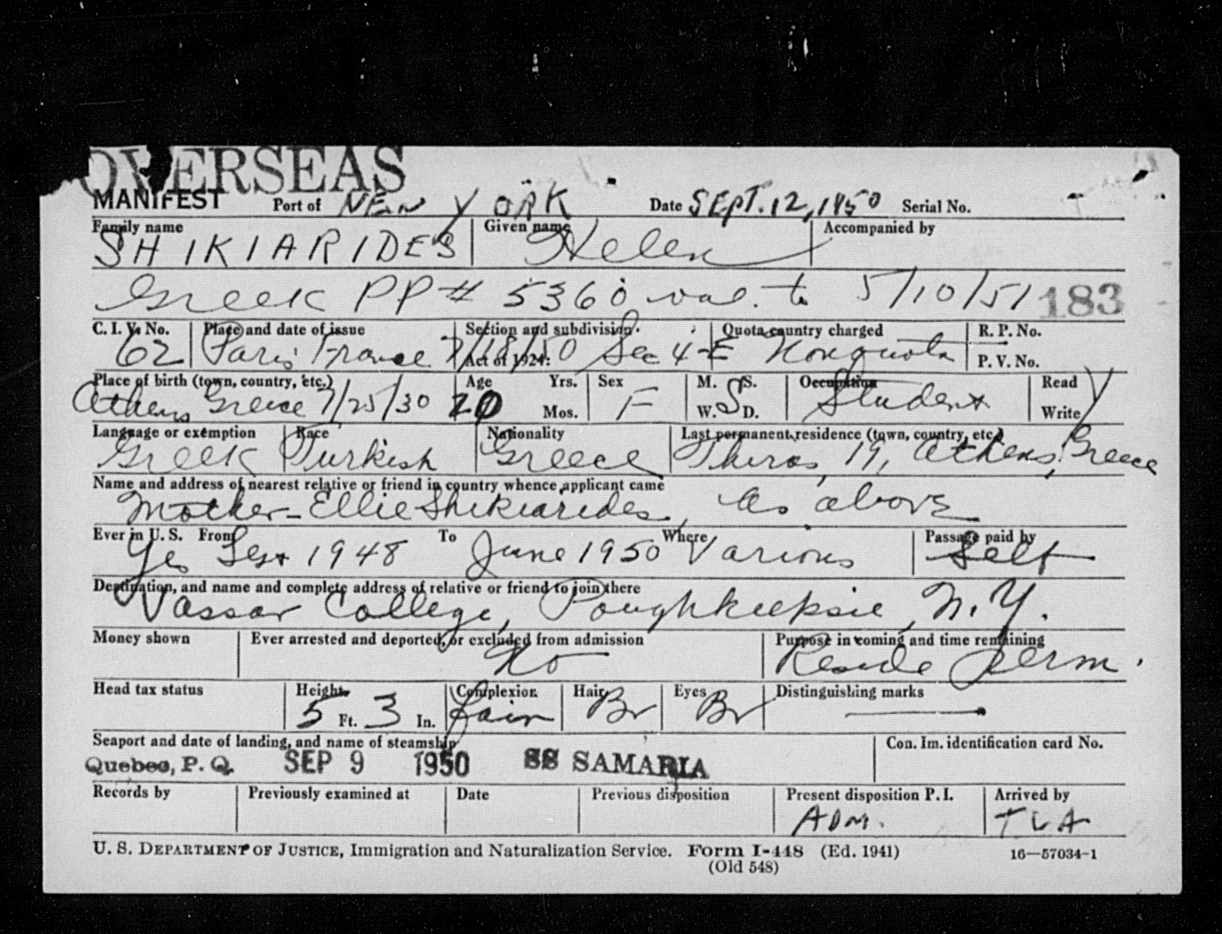 OVERSEAS
MANIFEST Port of NEW YORK Date SEPT. 12, 1950 Serial No.
Family name Given name Accompanied by
SHIKIARIDES Helen
Greek PP# 5360 val. to 5/10/51 183
C. I. V. No. Place and date of issue Section and subdivision Act of 1924: Quota country charged R. P. No. P. V. No.
62 Paris France 7/18/50 Sec 4-E Nonquota
Place of birth (town, country, etc.) Age Yrs. Mos. Sex M. S. W. D. Occupation Read Write
Athens Greece 7/25/30 20 F S Student Y
Language or exemption Race Nationality Last permanent residence (town, country, etc.)
Greek Turkish Greece Thiras 19, Athens, Greece
Name and address of nearest relative or friend in country whence applicant came
Mother - Ellie Shikiarides, as above
Ever in U. S. From To Where Passage paid by
Yes Sept 1948 June 1950 Various Self
Destination, and name and complete address of relative or friend to join there
Vassar College, Poughkeepsie, N.Y.
Money shown Ever arrested and deported, or excluded from admission Purpose in coming and time remaining
No Reside Perm.
Head tax status Height Complexion Hair Eyes Distinguishing marks
5 Ft. 3 In. Fair Br Br —
Seaport and date of landing, and name of steamship Con. Im. identification card No.
Quebec, P. Q. SEP 9 1950 SS SAMARIA
Records by Previously examined at Date Previous disposition Present disposition P. I. Arrived by
ADM. TCA
U. S. DEPARTMENT OF JUSTICE, Immigration and Naturalization Service. Form I-448 (Ed. 1941) 16—57034-1
(Old 548)